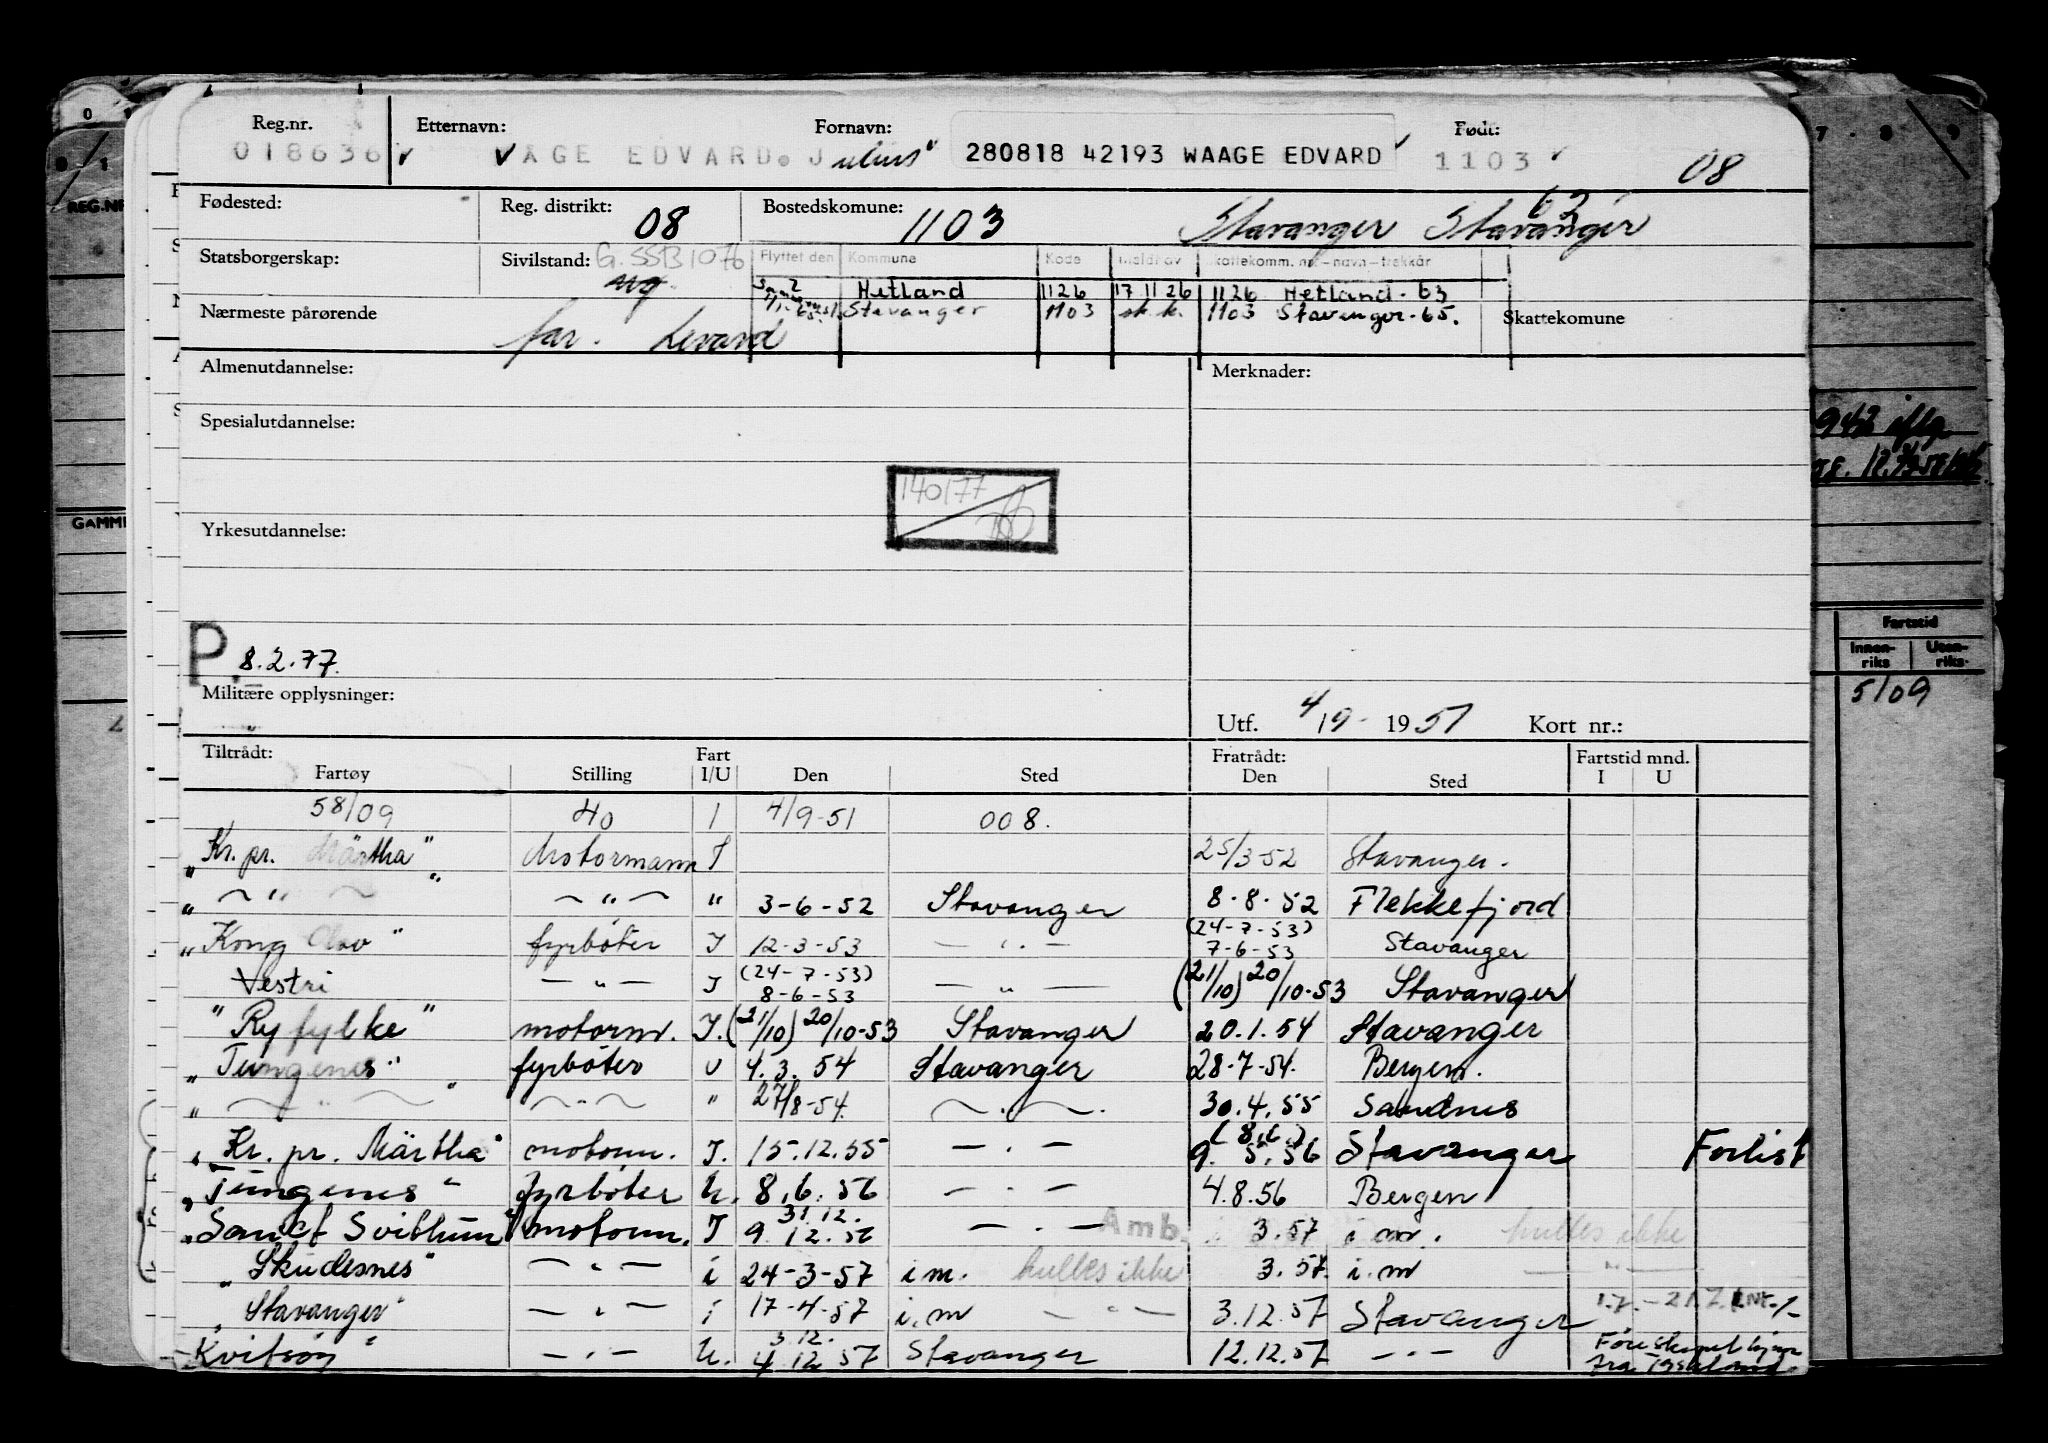 Reg.nr. Etternavn: Fornavn: Født:
018636 VAGE EDVARD. Julius 280818 42193 WAAGE EDVARD 1103 08
Fødested: Reg. distrikt: 08 Bostedskomune: 1103 Stavanger Stavanger 63
Statsborgerskap: Sivilstand: G. SSB 1076 Flyttet den Kommune Kode Meldt av Skattekomm. nr-navn-trekkår
ug 2 Hetland 1126 17 11 26 1126 Hetland - 63
Nærmeste pårørende Stavanger 1103 sk.k. 1103 Stavanger - 65. Skattekomune
far. Levard
Almenutdannelse: Merknader:
Spesialutdannelse:
140177
Yrkesutdannelse:
P. 8.2.77.
Militære opplysninger:
Utf. 4/9- 1951 Kort nr.:
Tiltrådt: Fart Fratrådt: Fartstid mnd.
Fartøy Stilling I/U Den Sted Den Sted I U
58/09 40 1 4/9-51 008.
"Kr. pr. Märtha" Motormann I 25/3-52 Stavanger.
" — " — " — " — " 3-6-52 Stavanger 8-8-52 Flekkefjord
"Kong Olav" fyrbøter I 12-3-53 — " — (24-7-53) 7-6-53 Stavanger
Vestri — " — I (24-7-53) 8-6-53 — " — (21/10) 20/10-53 Stavanger
"Ryfylke" motorm. I. (21/10) 20/10-53 Stavanger 20.1.54 Stavanger
"Tungenes" fyrbøter U 4.3.54 Stavanger 28-7-54. Bergen.
" — " — " — " — " 27/8-54. — " — 30.4.55 Sandnes
"Kr. pr. Märtha" motorm. I. 15.12.55 — " — (8.6.) 9.5.56 Stavanger Forlist
"Tungenes" fyrbøter U. 8.6.56 — " — 4.8.56 Bergen
"Sanct Svithun" motorm. I 31.12. 9.12.56 — " — Amb. 3.57 i.m. hulles ikke
"Skudesnes" — " — i 24-3-57 i.m. hulles ikke 3.57. i.m — " —
"Stavanger" — " — i 17-4-57 i.m — " — 3.12.57 Stavanger
Kvitsøy" — " — U. 3.12. 4.12.57 Stavanger 12.12.57 — " — fra
0
0 1
REG.NR
GAMM
7 - 8 - 9
Fartstid
Innen-riks Uten-riks
5/09